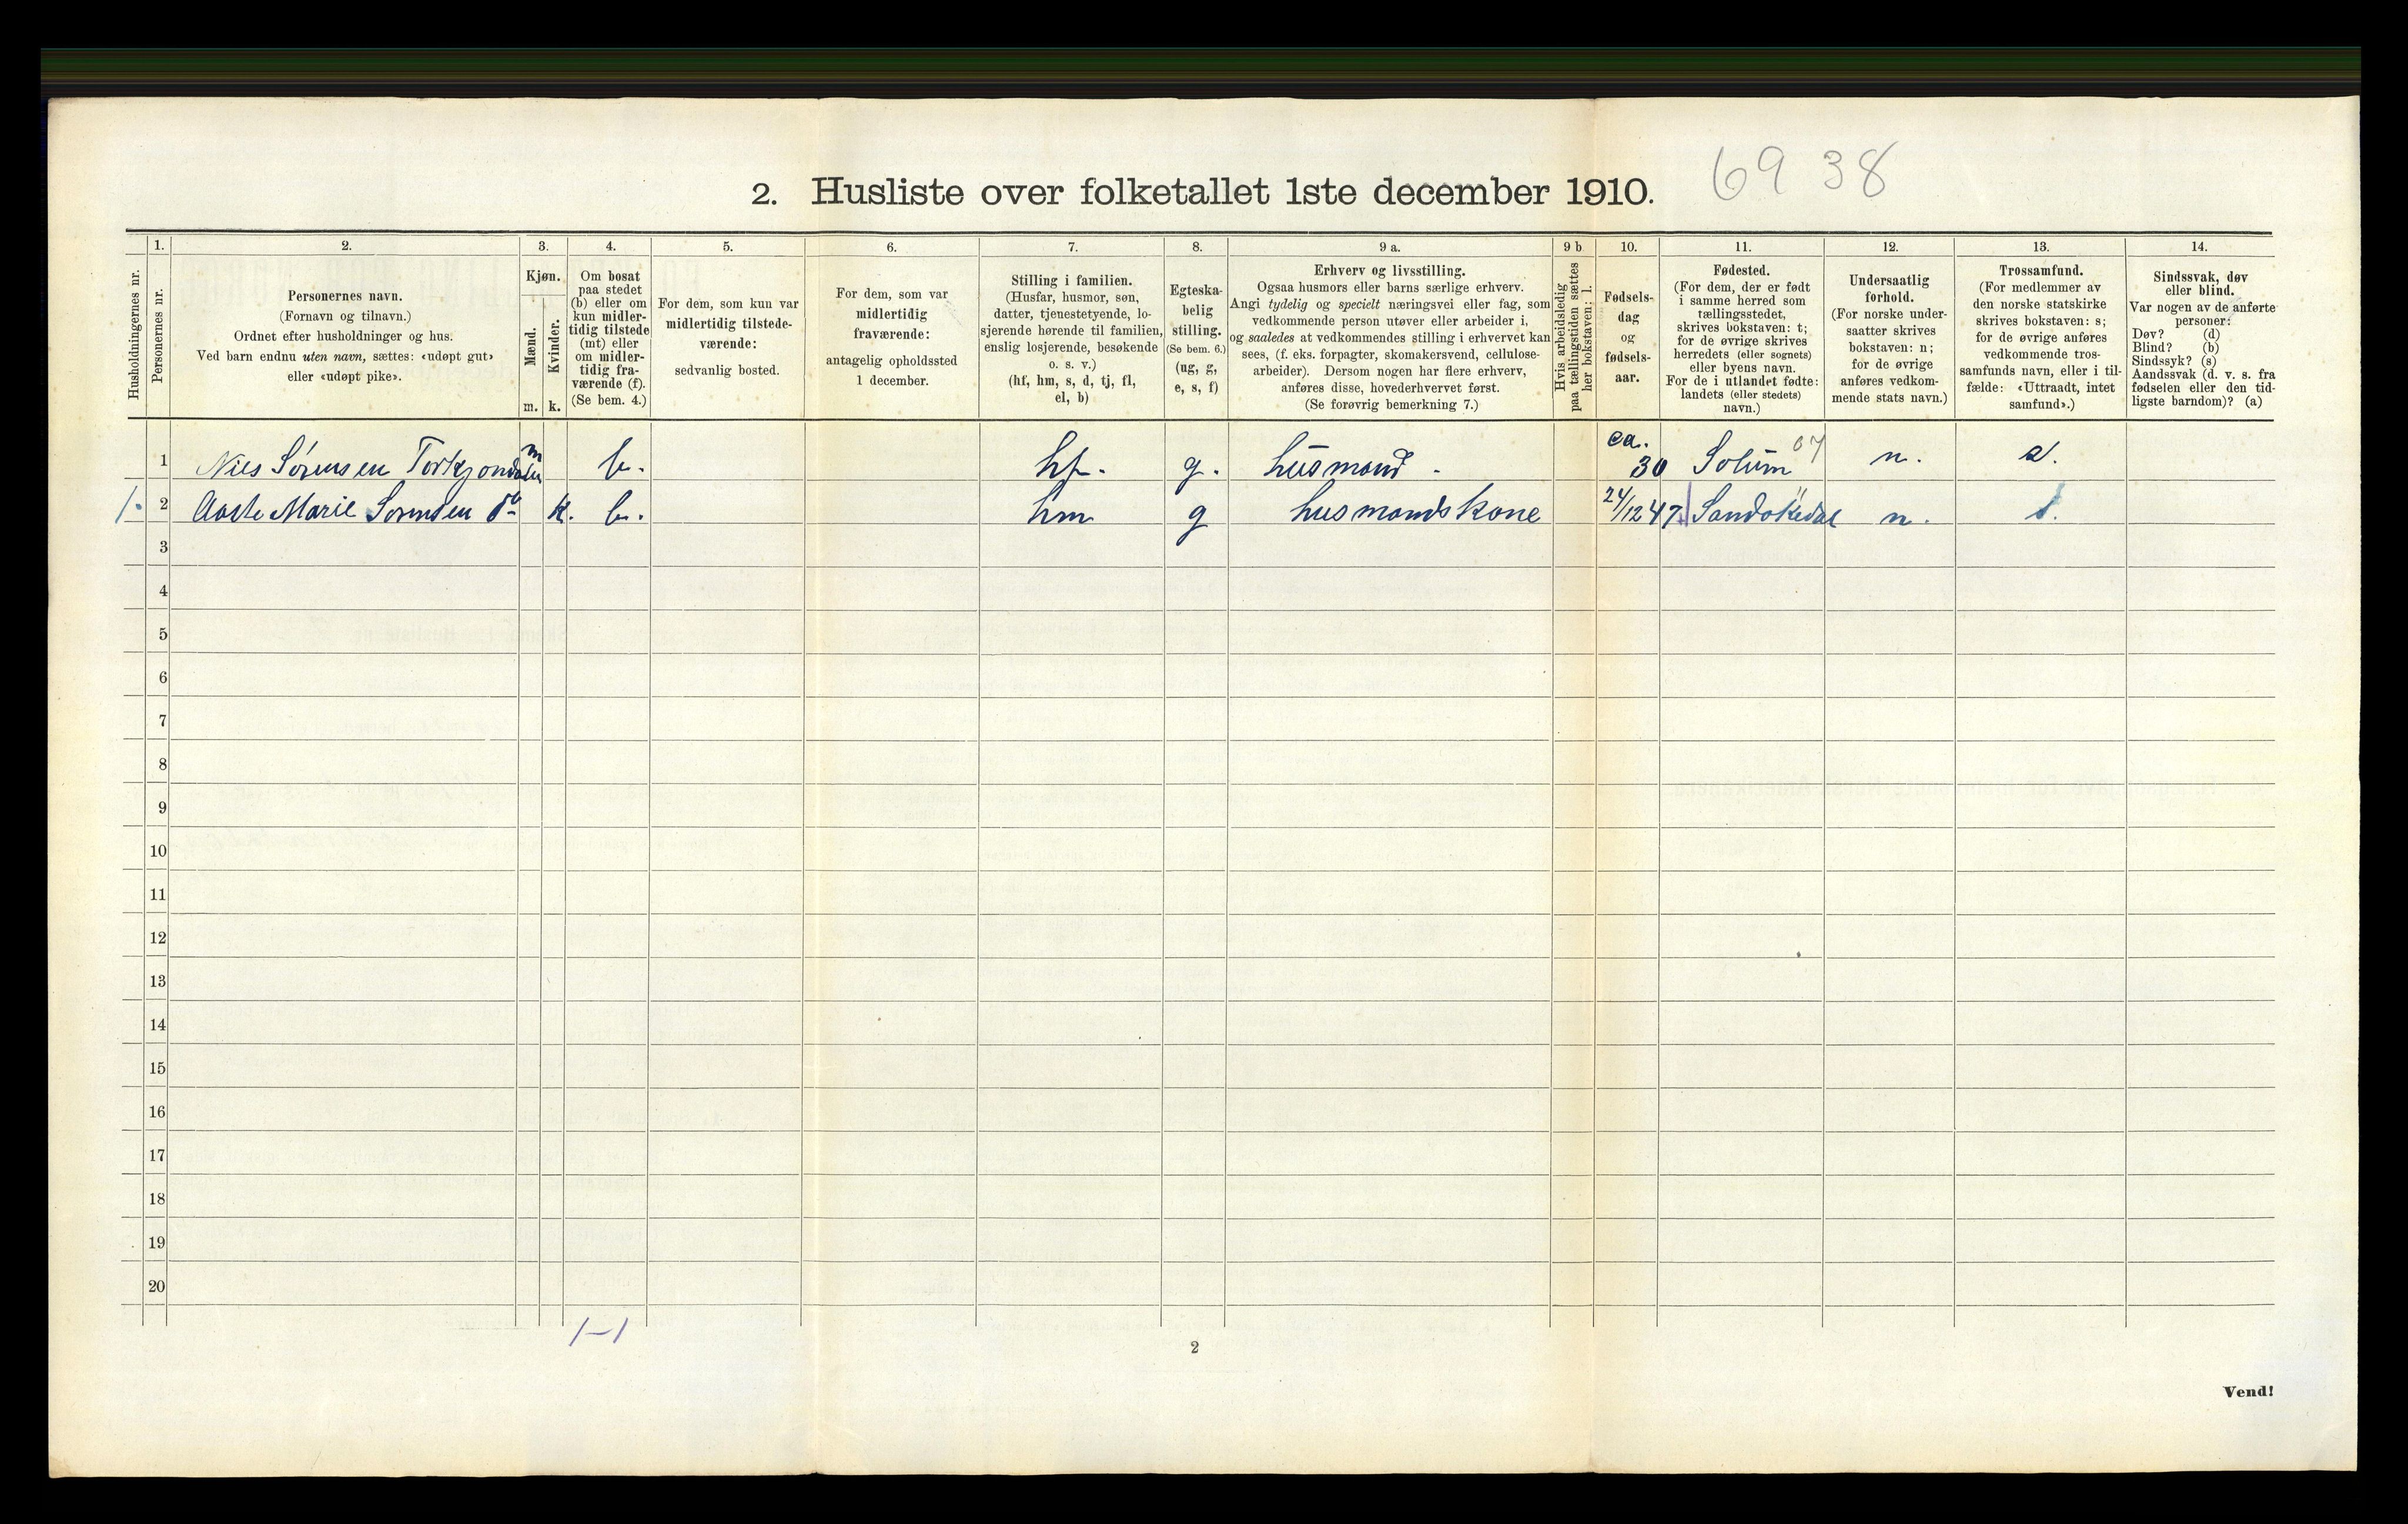 69 38
2. Husliste over folketallet 1ste december 1910.
Husholdningernes nr.
1.
Personernes nr.
2.
Personernes navn.
(Fornavn og tilnavn.)
Ordnet efter husholdninger og hus.
Ved barn endnu uten navn, sættes: «udøpt gut»
eller «udøpt pike».
3.
Kjøn.
Mænd.
Kvinder.
m. k.
4.
Om bosat
paa stedet
(b) eller om
kun midler-
tidig tilstede
(mt) eller
om midler-
tidig fra-
værende (f).
(Se bem. 4.)
5.
For dem, som kun var
midlertidig tilstede-
værende:
sedvanlig bosted.
6.
For dem, som var
midlertidig
fraværende:
antagelig opholdssted
1 december.
7.
Stilling i familien.
(Husfar, husmor, søn,
datter, tjenestetyende, lo-
sjerende hørende til familien,
enslig losjerende, besøkende
o. s. v.)
(hf, hm, s, d, tj, fl,
el, b)
8.
Egteska-
belig
stilling.
(Se bem. 6.)
(ug, g,
e, s, f)
9 a.
Erhverv og livsstilling.
Ogsaa husmors eller barns særlige erhverv.
Angi tydelig og specielt næringsvei eller fag, som
vedkommende person utøver eller arbeider i,
og saaledes at vedkommendes stilling i erhvervet kan
sees, (f. eks. forpagter, skomakersvend, cellulose-
arbeider). Dersom nogen har flere erhverv,
anføres disse, hovederhvervet først.
(Se forøvrig bemerkning 7.)
9 b
Hvis arbeidsledig
paa tællingstiden sættes
her bokstaven: l.
10.
Fødsels-
dag
og
fødsels-
aar.
11.
Fødested.
(For dem, der er født
i samme herred som
tællingsstedet,
skrives bokstaven: t;
for de øvrige skrives
herredets (eller sognets)
eller byens navn.
For de i utlandet fødte:
landets (eller stedets)
navn.)
12.
Undersaatlig
forhold.
(For norske under-
saatter skrives
bokstaven: n;
for de øvrige
anføres vedkom-
mende stats navn.)
13.
Trossamfund.
(For medlemmer av
den norske statskirke
skrives bokstaven: s;
for de øvrige anføres
vedkommende tros-
samfunds navn, eller i til-
fælde: «Uttraadt, intet
samfund».)
14.
Sindssvak, døv
eller blind.
Var nogen av de anførte
personer:
Døv? (d)
Blind? (b)
Sindssyk? (s)
Aandssvak (d. v. s. fra
fødselen eller den tid-
ligste barndom)? (a)
1 Nils Sørensen Torkjondalen m b. hf. g. husmand. ca. 30 Solum 07 n. s.
1. 2 Aaste Marie Sørensen do k. b. hm g husmandskone 24/12 47 Sandøkedal n. s.
3
4
5
6
7
8
9
10
11
12
13
14
15
16
17
18
19
20
1-1
2
Vend!